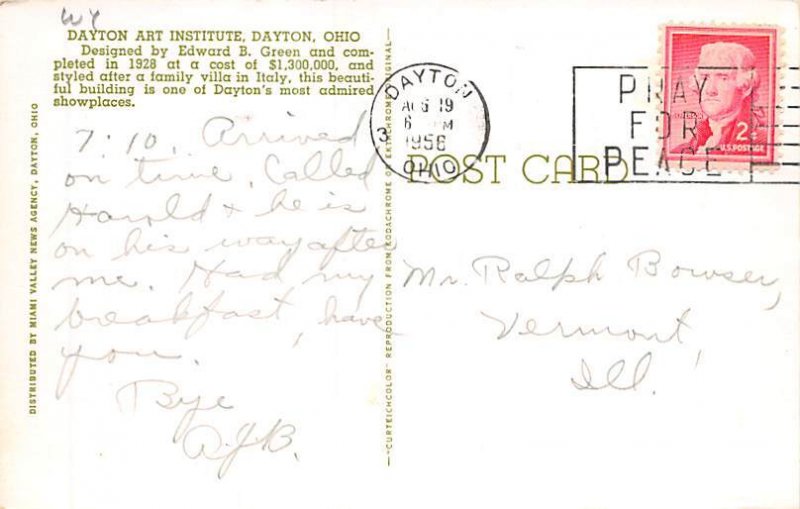 WY
DAYTON ART INSTITUTE, DAYTON, OHIO
Designed by Edward B. Green and com-
pleted in 1928 at a cost of $1,300,000, and
styled after a family villa in Italy, this beauti-
ful building is one of Dayton's most admired
showplaces.
7:10. Arrived
on time. Called
Harold + he is
on his way after
me. Had my
breakfast, have
you.
Bye
DISTRIBUTED BY MIAMI VALLEY NEWS AGENCY, DAYTON, OHIO
"CURTEICHCOLOR" REPRODUCTION FROM KODACHROME OR EKTACHROME ORIGINAL
DAYTON
AUG 19
6 PM
1956
OHIO
3
PRAY
FOR
PEACE
2¢
U.S. POSTAGE
POST CARD
Mr. Ralph Bowser,
Vermont,
Ill.